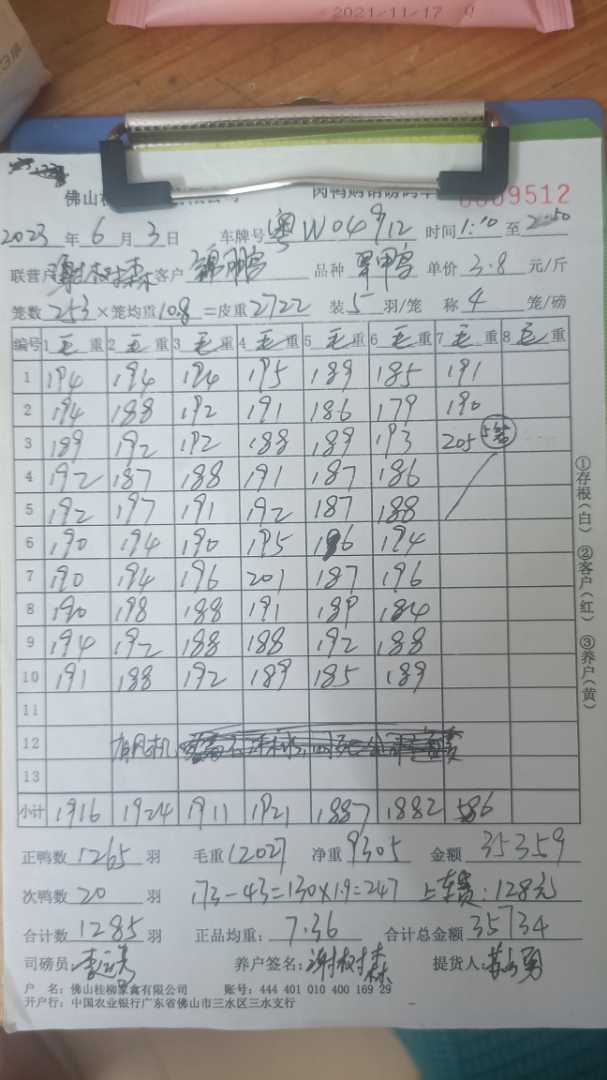 2021/11/17
佛山桂
9512
2023年6月3日 车牌号粤W04912 时间1:10至2:50
联营户 谢树森 客户 锦鹏 品种 单价3.8元/斤
笼数253×笼均重10.8=皮重2722 装5羽/笼 称4笼/磅
编号 1毛重 2毛重 3毛重 4毛重 5毛重 6毛重 7毛重 8毛重
1 194 194 194 195 189 185 191
2 194 188 192 191 186 179 190
3 189 192 192 188 189 193 205 5笼
4 192 187 188 191 187 186
5 192 197 191 192 187 188
6 190 194 190 195 186 194
7 190 194 196 201 187 196
8 190 198 188 191 189 184
9 194 192 188 188 192 188
10 191 188 192 189 185 189
11
12 有风机
13
小计 1916 1924 1911 1921 1887 1882 586
正鸭数1265羽 毛重12027 净重9305 金额35359
次鸭数20羽 173-43=130×1.9=247 上车费:128元
合计数1285羽 正品均重:7.36 合计总金额35734
司磅员: 养户签名:谢树森 提货人:苏勇
户 名:佛山桂柳家禽有限公司 账号:444 401 010 400 169 29
开户行:中国农业银行广东省佛山市三水区三水支行
①存根(白) ②客户(红) ③养户(黄)